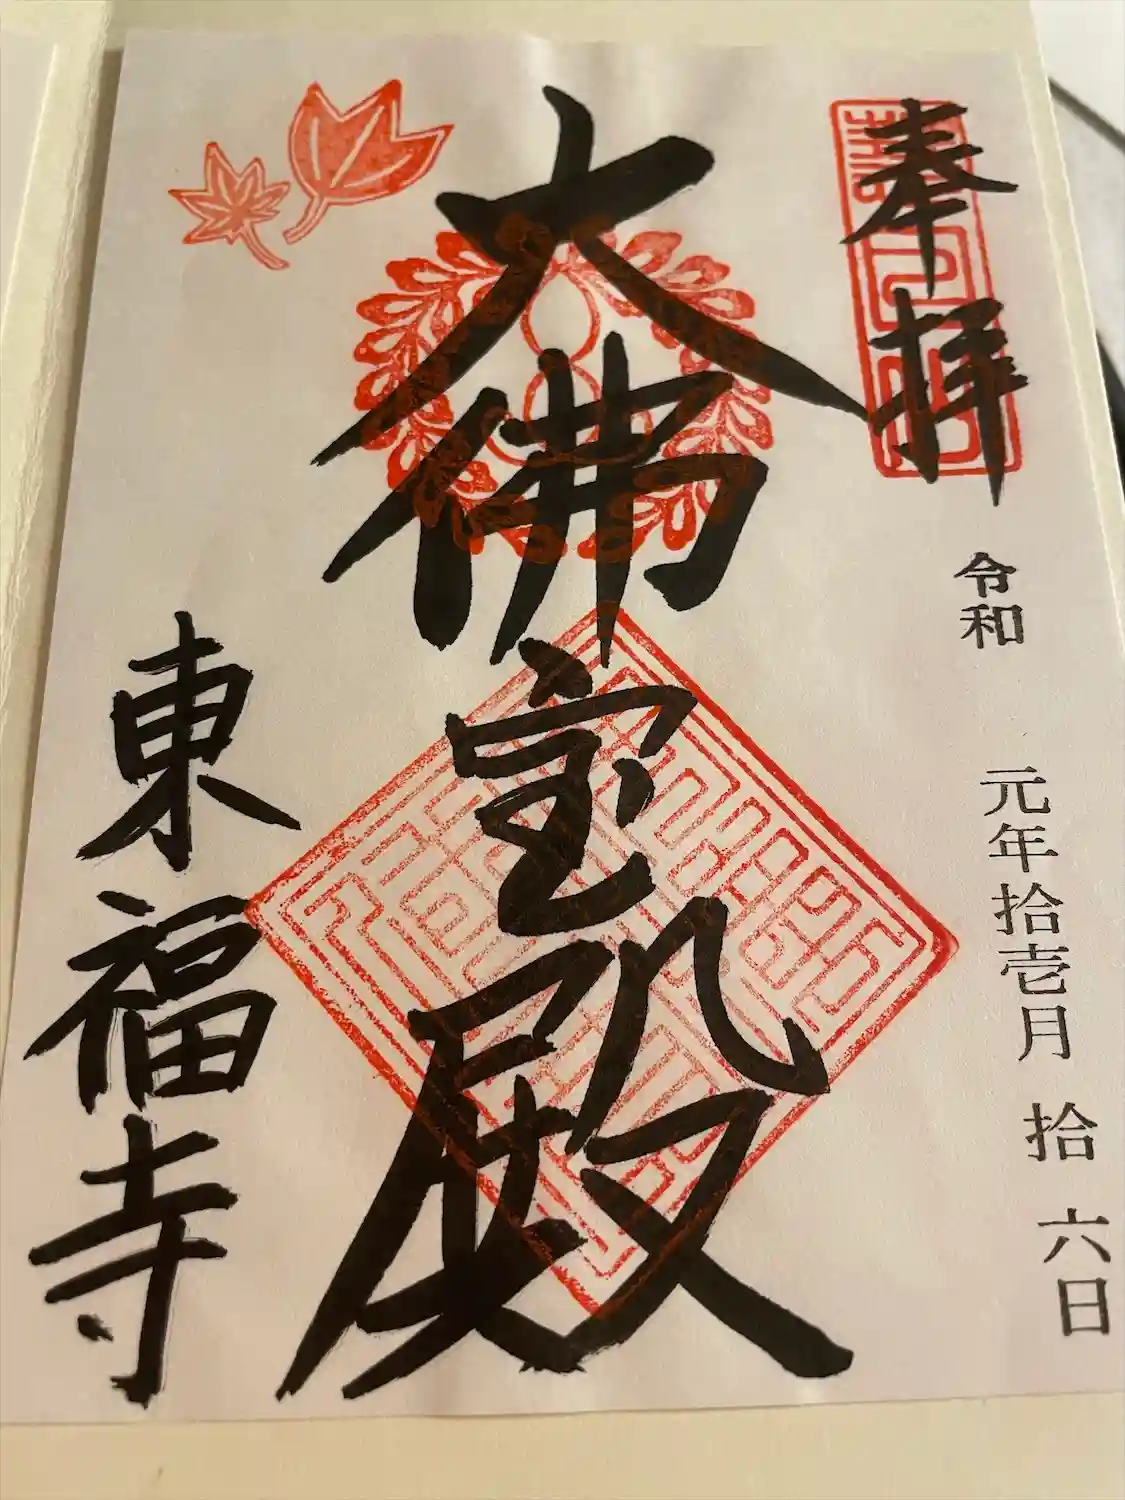 奉拝
令和 元年拾壱月 拾 六日
大佛宝殿
東福寺